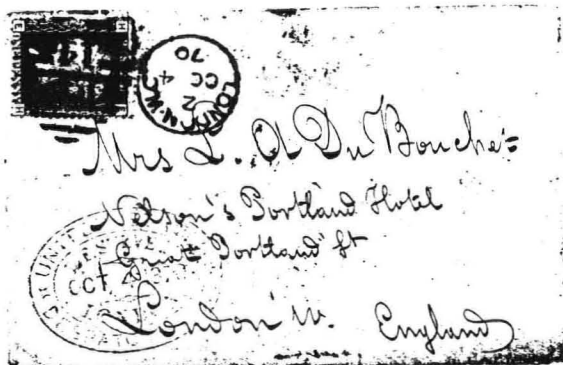 LONDON N.W.
CC
2 4
70
Mrs L. A Du Bouchet
Nelson's Portland Hotel
Great Portland St
OCT
London W. England